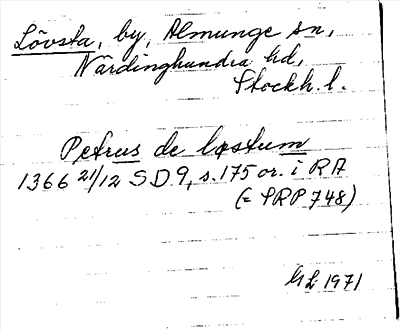 Lövsta, by, Almunge sn,
Närdinghundra hd,
Stockh. l.
Petrus de løstum
1366 21/12 SD 9, s. 175 or. i RA
(= SRP 748)
GL 1971